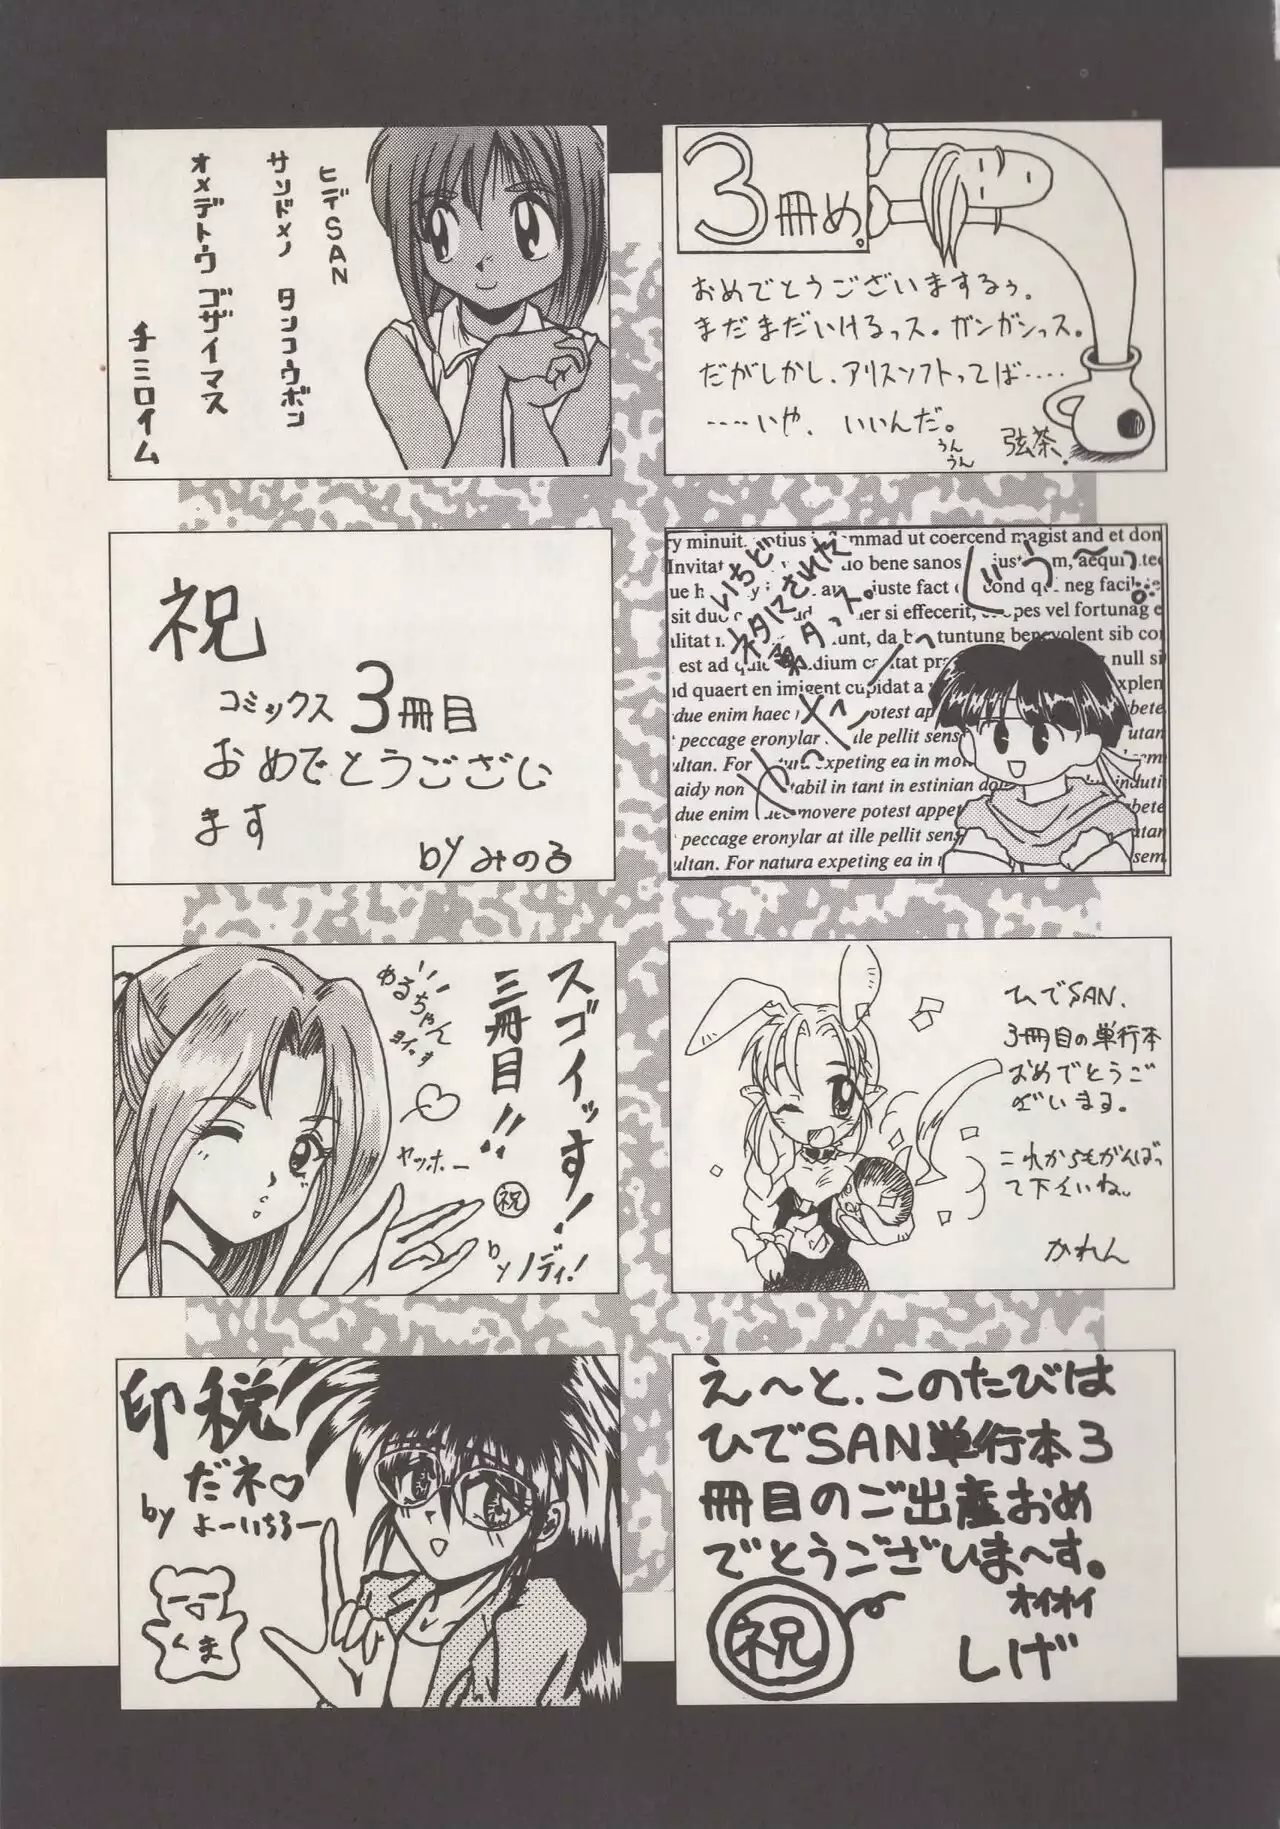 ヒデSAN
サンドメノ タンコウボン
オメデトウ ゴザイマス
チミロイム
3冊め。
おめでとうございまするぅ。
まだまだいけるっス。ガンガンっス。
だがしかし、アリスソフトってば……
……いや、いいんだ。
うんうん
弦茶.
祝
コミックス3冊目
おめでとうござい
ます
by みのる
いちど
ネタにされた
ry minuit.
mmad ut coercend magist and et don
Invitat
bene sanos
neg facil
si effecerit,
pes vel fortunag e
benevolent sib con
est ad
null si
nd quaert en imigent cupidat a
explen
due enim haec
otest ap
peccage eronylar
ille pellit sens
utan
ultan. For
expeting ea in mo
aidy non
tabil in tant in estinian do
induti
due enim
movere potest appet
bete
peccage eronylar at ille pellit sens
utan
ultan. For natura expeting ea in
sem
スゴイッす!
三冊目!!
めるちゃん
ヤッホー
祝
by ノディ!
ひでSAN.
3冊目の単行本
おめでとうご
ざいまする。
これからもがんばっ
て下さいね。
かれん
印税
だネ♡
by よーいちろー
くま
え〜と、このたびは
ひでSAN単行本3
冊目のご出産おめ
でとうございま〜す。
オイオイ
しげ
祝